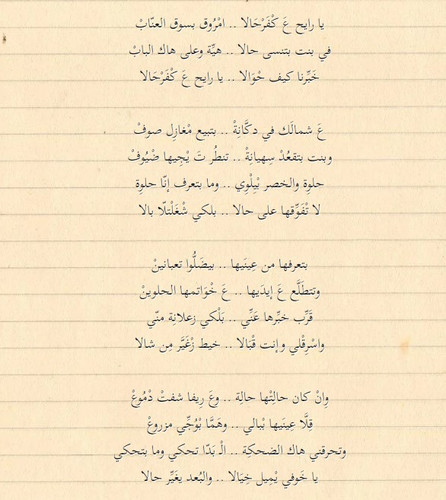 يا رايح عَ كْفَرْحَالا .. امْرُوق بسوق العنّابْ
في بنت بتنسى حالا .. هيّة وعلى هاك البابْ
خَبِّرنا كيف حْوَالا .. يا رايح عَ كْفَرْحَالا
عَ شمالَك في دكَّانِةْ .. بتبيع مْغازِل صوفْ
وبنت بتقعُدْ سِهيانِةْ .. تنطُر تَ يْجِيها ضْيُوفْ
حلوِة والخصر بْيِلْوِي .. وما بتعرف إنّا حلوِة
لا تْفَوِّقها على حالا .. بلكي شْغَلْتلّا بالا
بتعرفها من عِينَيها .. بيضَلُّوا تعبانينْ
وتتطَلَّع عَ إيدَيها .. عَ خْوَاتمها الحلوينْ
قَرِّب خبِّرها عَنِّي .. بَلْكي زعلانِة منّي
واسْرِقْلي وإنت قْبَالا .. خيط زْغَيَّر مِن شالا
وِانْ كان حالِتْها حالِة .. وعَ رِيفا شفتْ دْمُوعْ
قِلَّا عِينَيها بْبالي .. وهَمَّا بْوُجِّي مزروعْ
وتحرقني هاك الضحكِة .. الْـ بَدّا تحكي وما بتحكي
يا خَوفي يْمِيل خِيَالا .. والبُعد يغَيِّر حالا